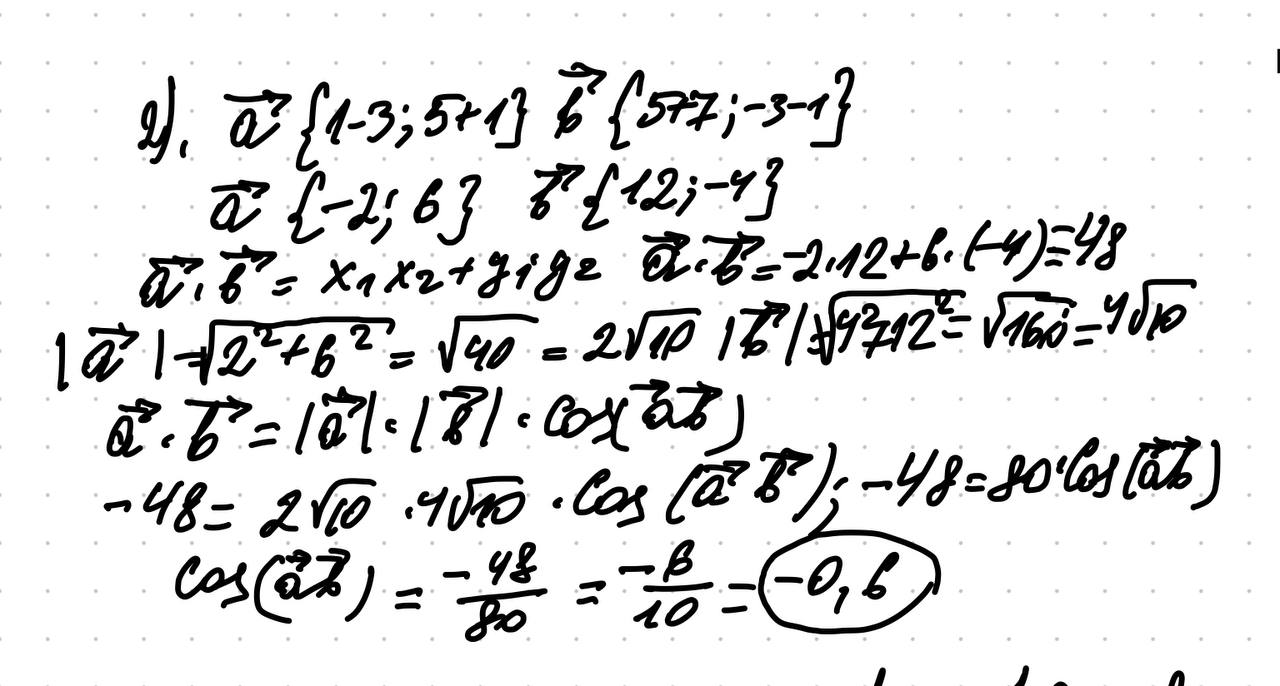 2). a⃗ {1-3; 5+1} b⃗ {5+7; -3-1}
a⃗ {-2; 6} b⃗ {12; -4}
a⃗·b⃗ = x₁x₂+y₁y₂ a⃗·b⃗ = -2·12+6·(-4)=-48
|a⃗|=√(2²+6²) = √40 = 2√10 |b⃗|=√(4²+12²) = √160 = 4√10
a⃗·b⃗ = |a⃗|·|b⃗|·cos(a⃗b⃗)
-48 = 2√10 · 4√10 · cos(a⃗ b⃗); -48=80·cos(a⃗b⃗)
cos(a⃗b⃗) = -48/80 = -6/10 = -0,6